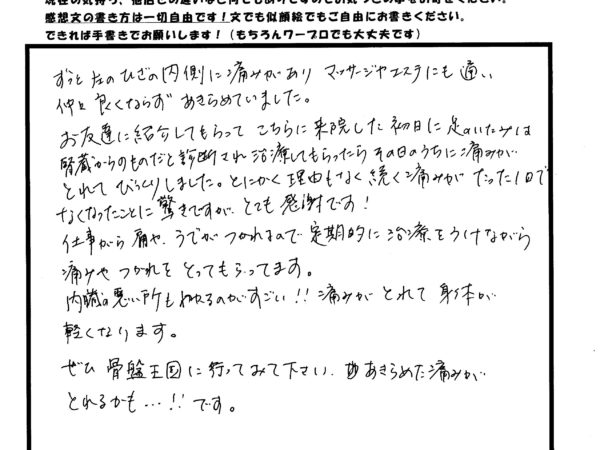 感想文の書き方は一切自由です！文でも似顔絵でもご自由にお書きください。
できれば手書きでお願いします！（もちろんワープロでも大丈夫です）
ずっと左のひざの内側に痛みがあり マッサージやエステにも通い
仲々良くならず あきらめていました。
お友達に紹介してもらって こちらに来院した初日に足のいたみは
腎臓からのものだと診断され 治療してもらったら その日のうちに痛みが
とれて びっくりしました。とにかく理由もなく続く痛みが たった1日で
なくなったことに驚きですが、とても感謝です！
仕事がら肩や、うでが つかれるので定期的に治療をうけながら
痛みや つかれを とってもらってます。
内臓の悪い所もわかるのがすごい!! 痛みが とれて 身体が
軽くなります。
ぜひ 骨盤王国に行ってみて下さい、あきらめた痛みが
とれるかも…!! です。